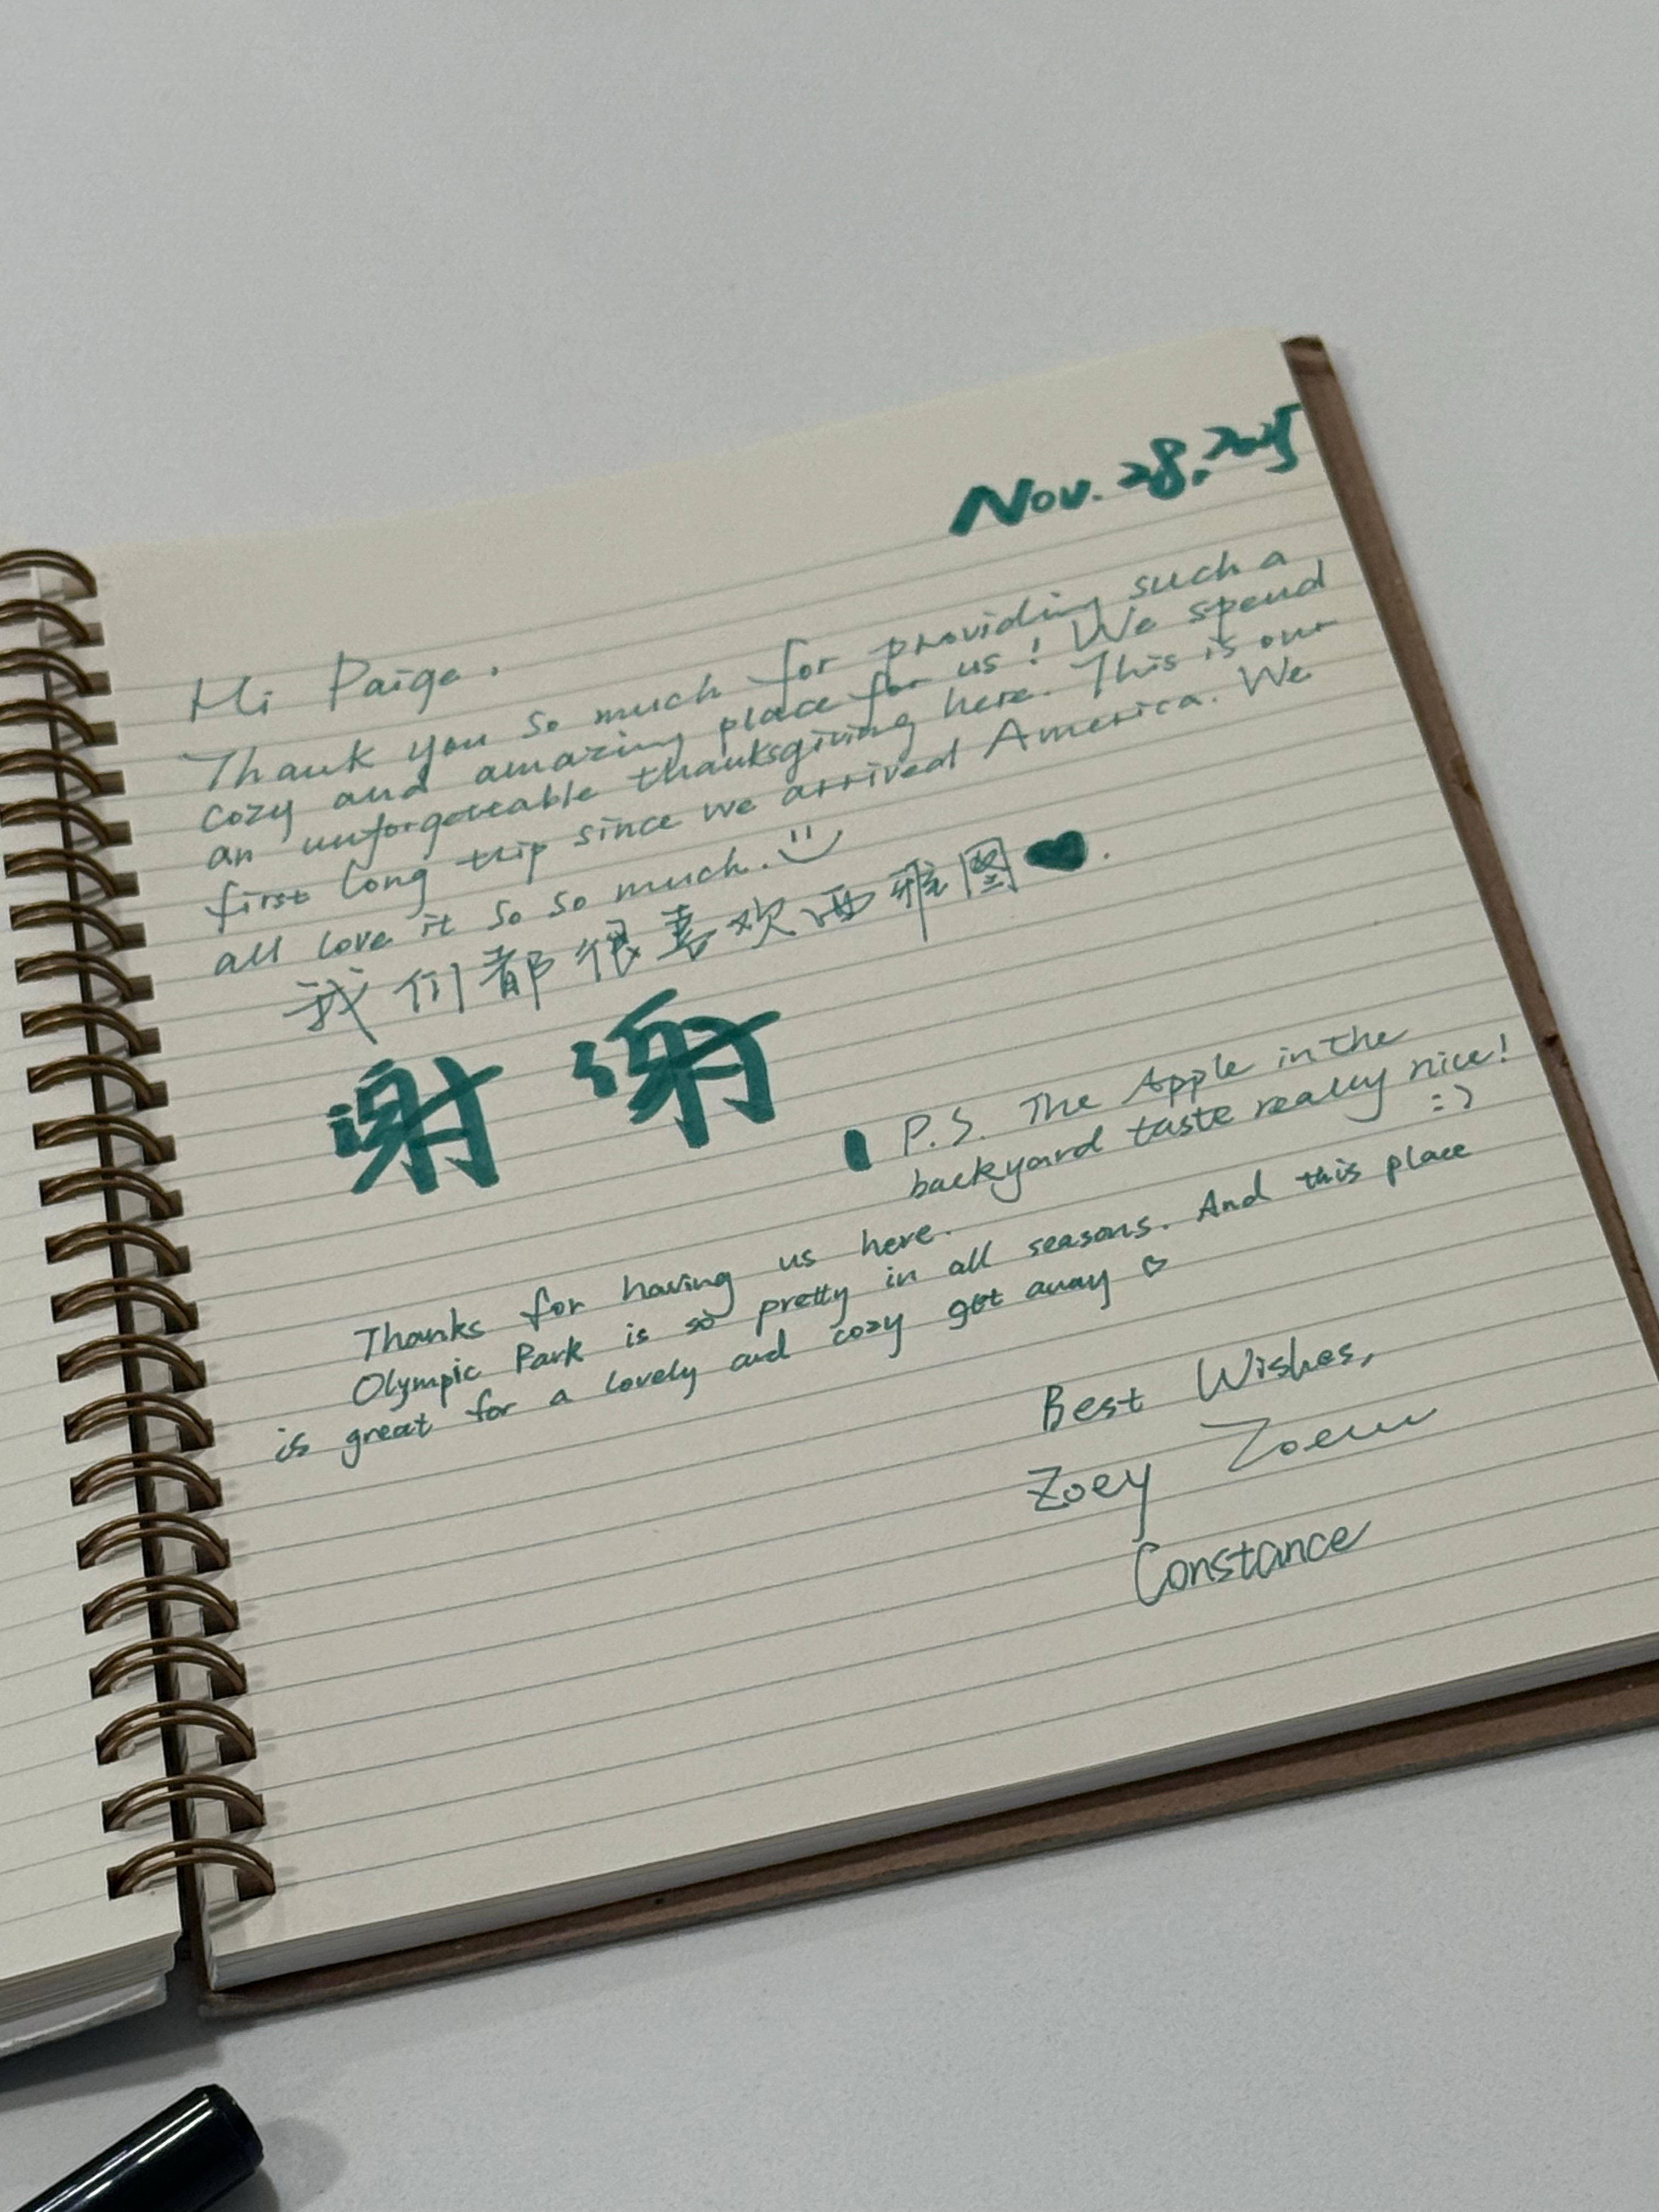 Nov. 28, 2025
Hi Paige.
Thank you so much for providing such a
cozy and amazing place for us! We spend
an unforgettable thanksgiving here. This is our
first long trip since we arrived America. We
all love it so so much.
我们都很喜欢西雅图
谢谢
P.S. The Apple in the
backyard taste really nice!
:)
Thanks for having us here.
Olympic Park is so pretty in all seasons. And this place
is great for a lovely and cozy get away
Best Wishes,
Zoey
Constance